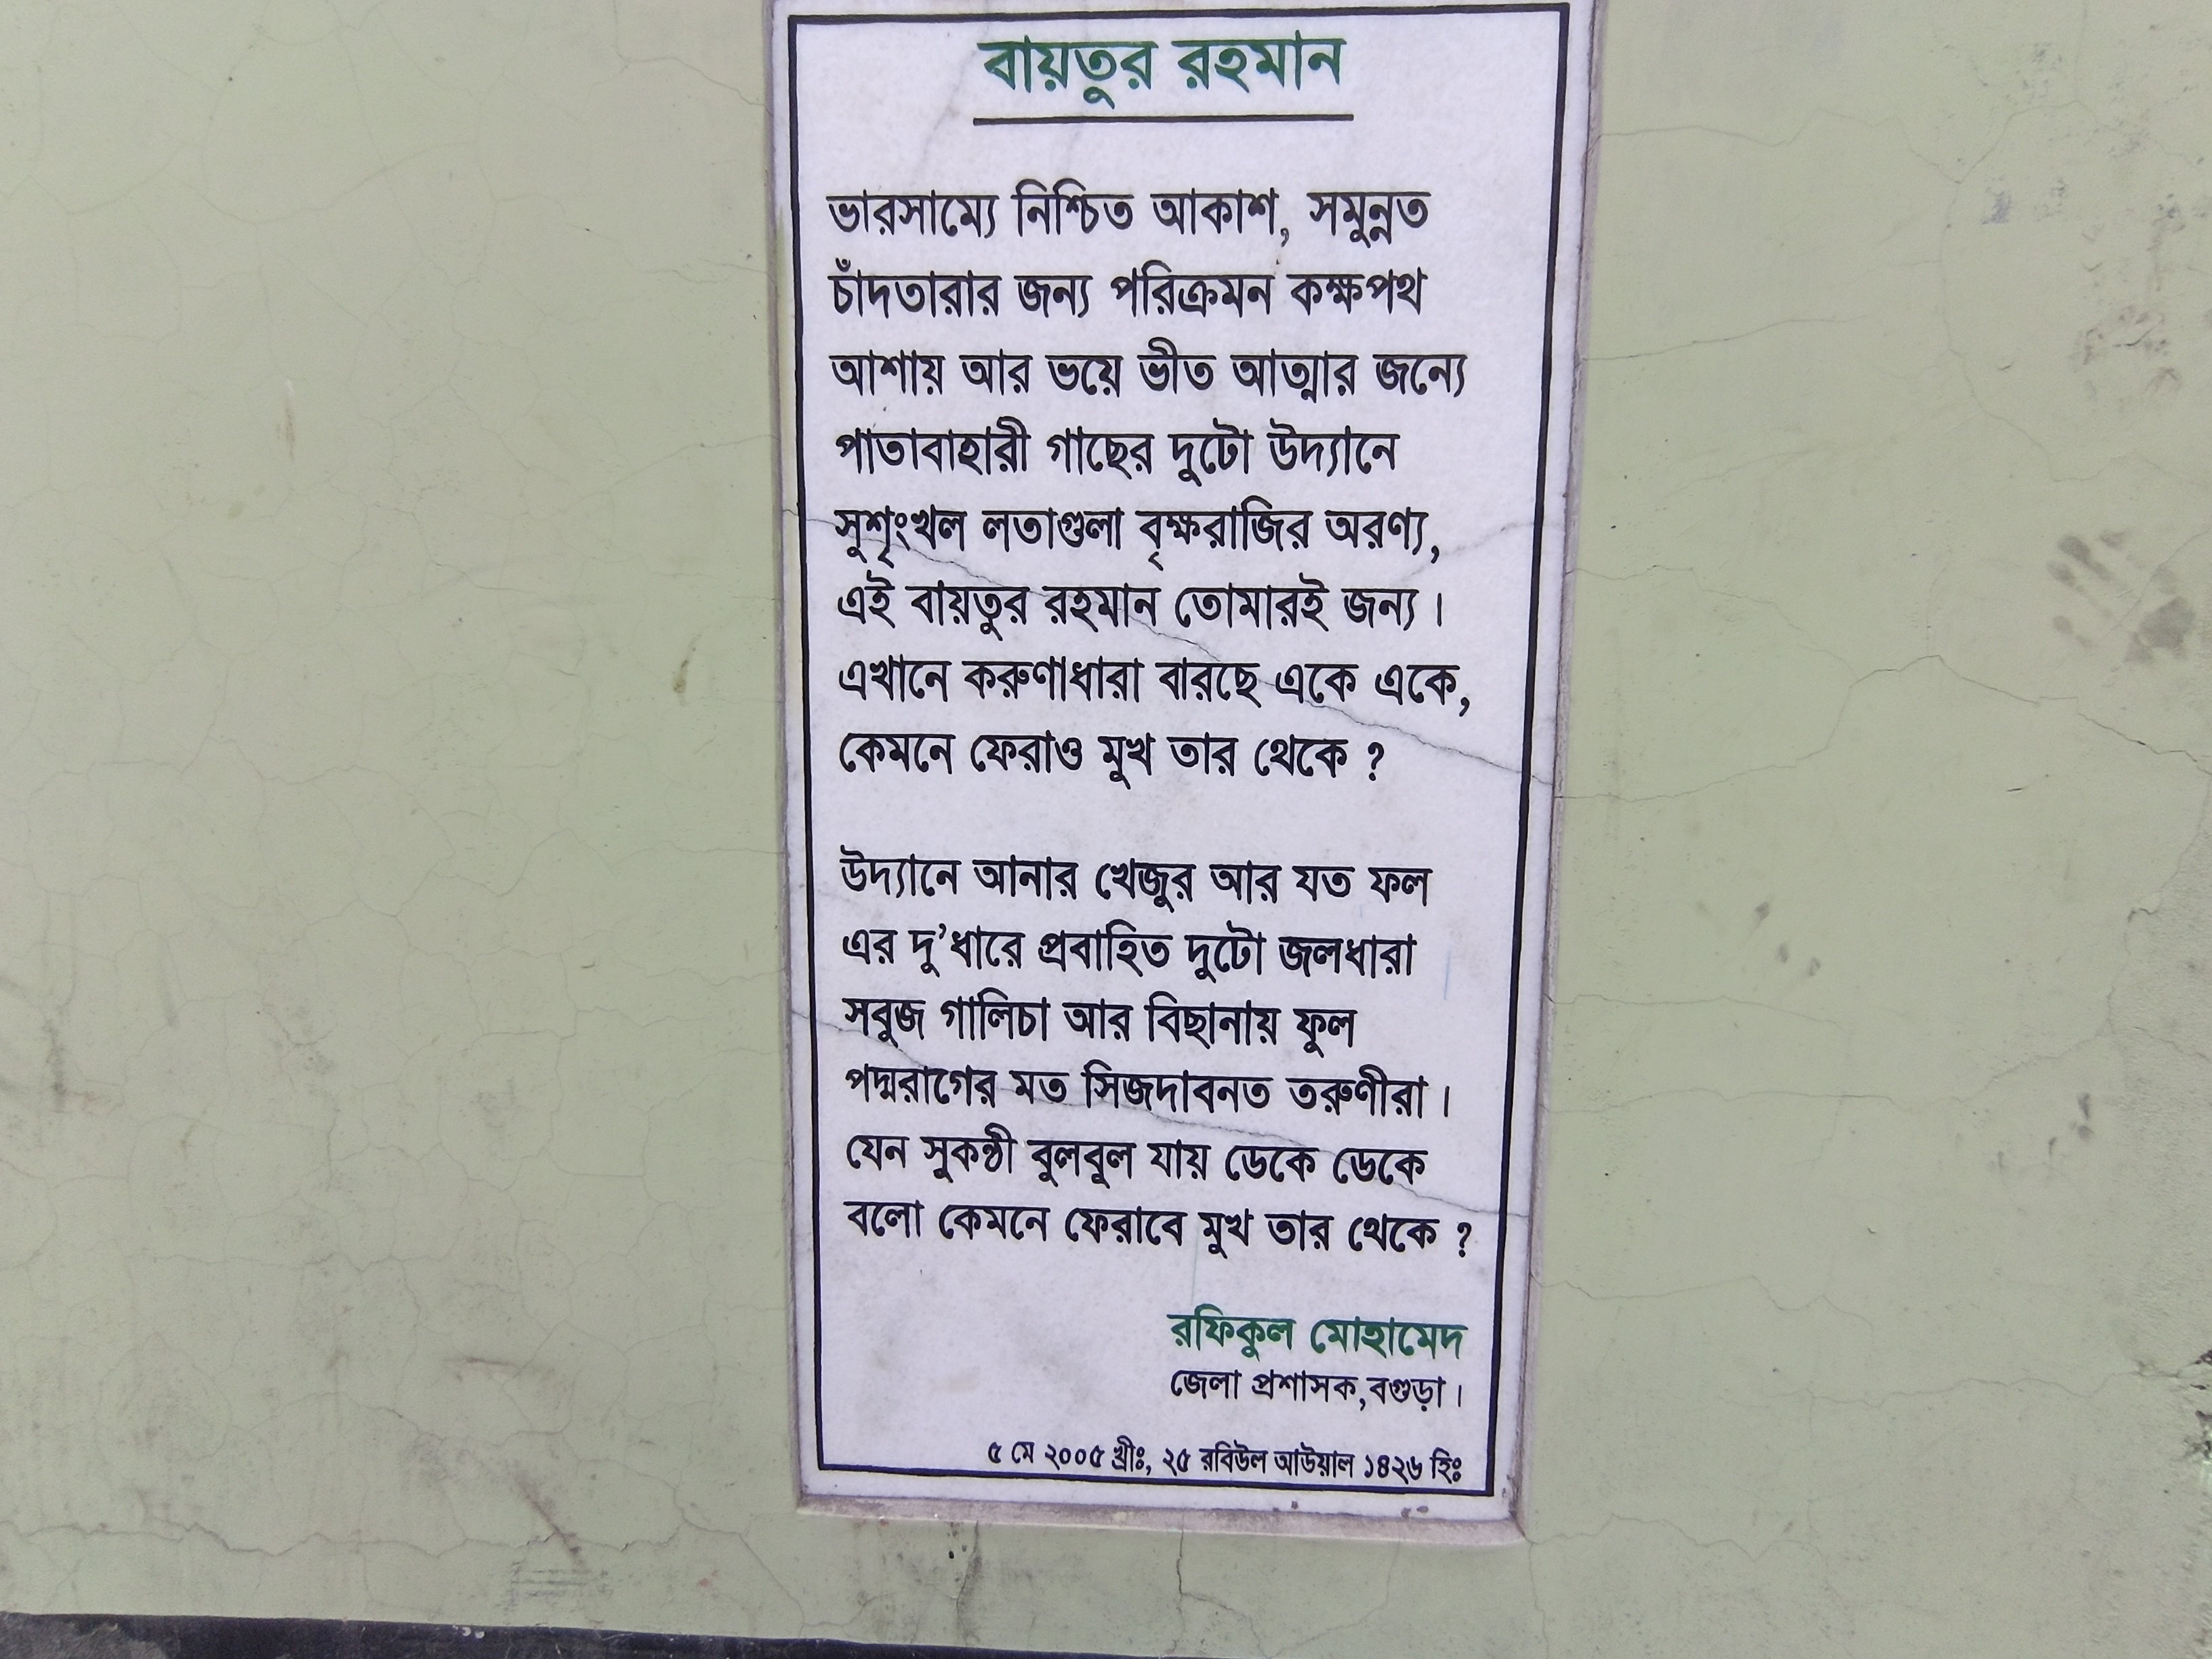 বায়তুর রহমান
ভারসাম্যে নিশ্চিত আকাশ, সমুন্নত
চাঁদতারার জন্য পরিক্রমন কক্ষপথ
আশায় আর ভয়ে ভীত আত্মার জন্যে
পাতাবাহারী গাছের দুটো উদ্যানে
সুশৃংখল লতাগুলা বৃক্ষরাজির অরণ্য,
এই বায়তুর রহমান তোমারই জন্য।
এখানে করুণাধারা বারছে একে একে,
কেমনে ফেরাও মুখ তার থেকে ?
উদ্যানে আনার খেজুর আর যত ফল
এর দু'ধারে প্রবাহিত দুটো জলধারা
সবুজ গালিচা আর বিছানায় ফুল
পদ্মরাগের মত সিজদাবনত তরুণীরা।
যেন সুকন্ঠী বুলবুল যায় ডেকে ডেকে
বলো কেমনে ফেরাবে মুখ তার থেকে ?
রফিকুল মোহামেদ
জেলা প্রশাসক,বগুড়া।
৫ মে ২০০৫ খ্রীঃ, ২৫ রবিউল আউয়াল ১৪২৬ হিঃ